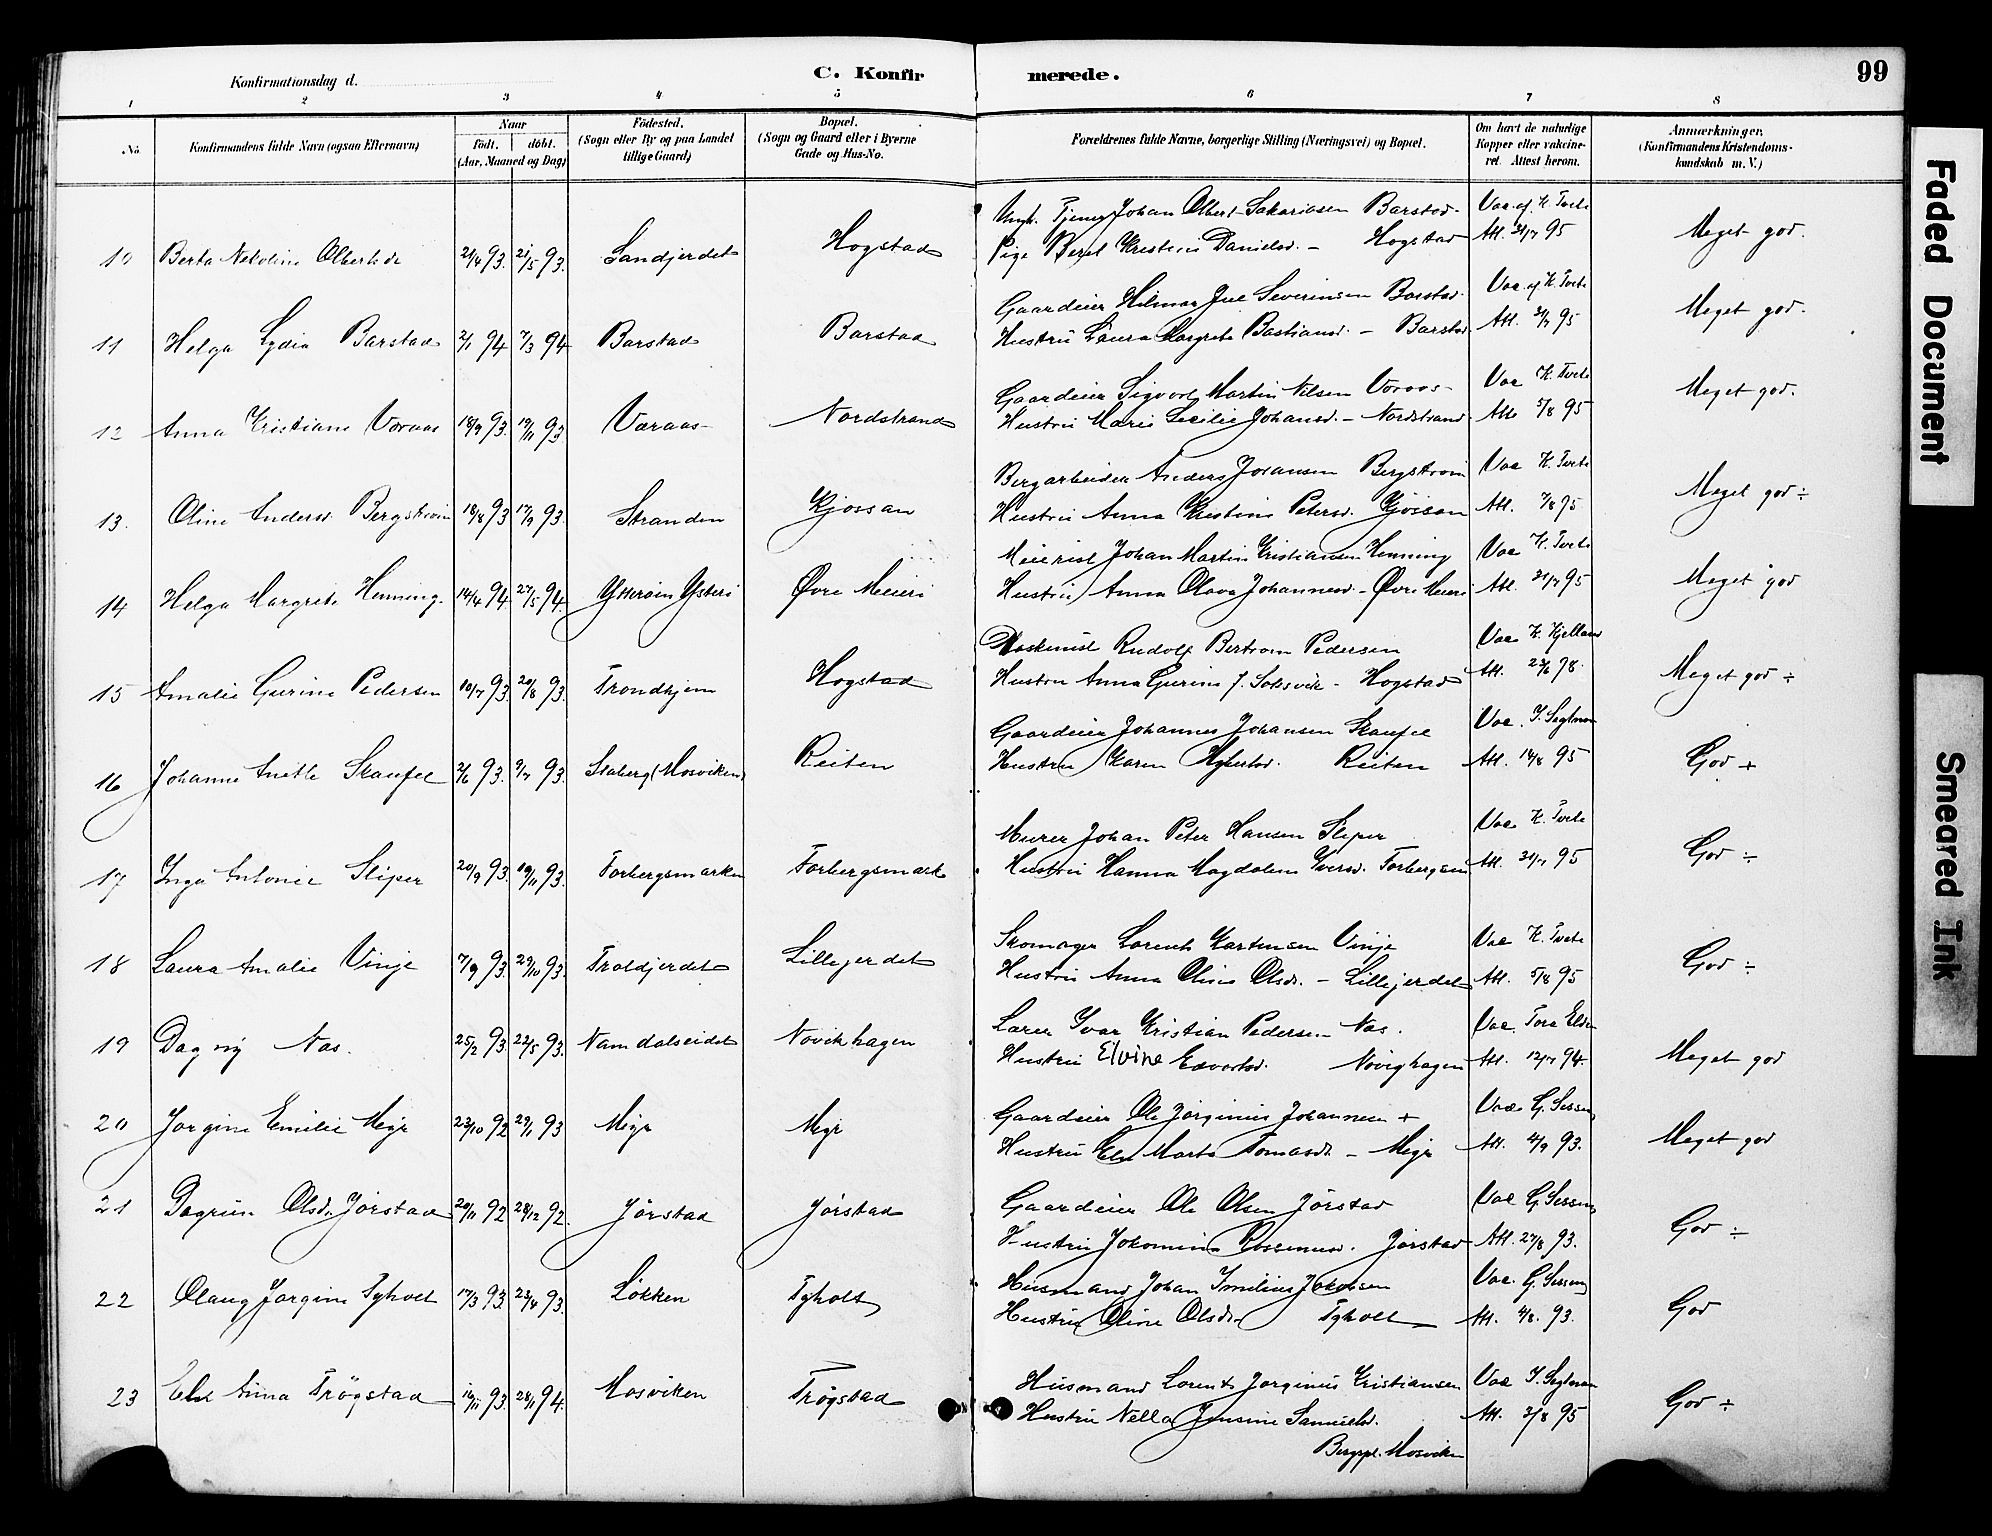 Konfirmationsdag d.
C. Konfir
merede.
99
1 2 3 4 5 6 7 8
No.
Konfirmandens fulde Navn (ogsaa Efternavn)
Naar
født. døbt.
(Aar, Maaned og Dag)
Fødested.
(Sogn eller By og paa Landet
tillige Gaard)
Bopæl.
(Sogn og Gaard eller i Byerne
Gade og Hus-No.
Forældrenes fulde Navne, borgerlige Stilling (Næringsvei) og Bopæl.
Om havt de naturlige
Kopper eller vakcine-
ret. Attest herom.
Anmærkninger.
(Konfirmandens Kristendoms-
kundskab m. V.)
Ungk. Tjener Johan Albert Sakariasen Barstad- Vac. af K. Tvete
10 Berta Nekoline Albertsdr 21/4 93. 21/5 93. Sandjerdet Hogstad Pige Beret Kristine Danielsd. - Hogstad Att. 31/7 95 Meget god.
Gaardeier Hilmar Jul Severinsen Barstad. Vac. af K. Tvete
11 Helga Lydia Barstad 2/1 94 7/3 94 Barstad Barstad Hustru Laura Margrete Bastiansd. - Barstad. Att. 31/7 95 Meget god.
Gaardeier Sigvort Martin Nilsen Voraas- Vac K. Tvete
12 Anna Kristiane Voraas 18/9 93. 19/11 93 Voraas- Nordstrand Hustru Marie Secilie Johansd. - Nordstrand. Att. 5/8 95 Meget god.
Bergarbeider Anders Johansen Bergstrøm Vac K. Tvete
13. Oline Andersd. Bergstrøm 18/8 93 17/9 93. Stranden Kjossan Hustru Anna Kristine Petersd. Kjøssan Att. 7/8 95 Meget god ÷
Meierist Johan Martin Kristiansen Henning Vac K. Tvete
14 Helga Margrete Henning. 14/4 94 27/5 94. Ytterøin Ysteri Øvre Meieri Hustru Anna Olava Johannesd. - Øvre Meieri Att. 31/7 95 Meget god
Maskinist Rudolf Bertram Pedersen Vac K. Kjelland
15 Amalie Gurine Pedersen 10/7 93. 20/8 93. Trondhjem Hogstad Hustru Anna Gurine J. Solsvik - Hogstad Att. 23/6 98. Meget god ÷
Gaardeier Johannes Johansen Skaufel Vac. J. Segtnan
16 Johanne Anette Skaufel 2/6 93. 9/7 93. Staberg (Mosviken) Reiten Hustru Karen Reiten Att. 14/8 95 God +
Murer Johan Peter Hansen Sliper Vac K. Tvete
17 Inga Antonie Sliper 20/9 93. 19/11 93. Forbergsmarken Forbergsmark Hustru Hanna Magdalene Iversd. Forbergsm Att. 31/7 95 God ÷
Skomager Lorents Kartensen Vinje Vac K. Tvete
18 Laura Amalie Vinje 7/9 93. 29/10 93. Troldjerdet Lillejerdet Hustru Anna Oline Olsdr. - Lillejerdet Att. 5/8 95 God ÷
Lærer Ivar Kristian Pedersen Næs. Vac. Tora Elden
19 Dagny Næs. 25/2 93. 22/5 93. Namdalseidet Novikhagen Hustru Elvine Edvartsd. Novighagen Att. 12/7 94. Meget god
Gaardeier Ole Jørginius Johannesen + Vac G. Sessen
20 Jorgine Emilie Migr 23/10 92 29/1 93 Migr Migr Hustru Elen Marta Tomasdr - Migr Att. 4/9 93. Meget god
Gaardeier Ole Olsen Jørstad Vac G. Sessen
21 Dagrun Olsdr. Jørstad 20/11 92 28/12 92. Jørstad Jørstad Hustru Jakomina Rassmusd. Jørstad Att. 27/8 93. God ÷
Husmand Johan Imilius Jakobsen Vac. G. Sessen
22 Olaug Jørgine Tyholt 17/3 93. 23/4 93. Løkken Tyholt Hustru Oline Olsdr. Tyholt Att. 4/8. 93. God
Husmand Lorents Jørginus Kristiansen Vac J. Segtnan
23 Elen Anna Trøgstad 10/11 93. 28/1 94. Mosviken Trøgstad Hustru Nella Jensine Samuelsd. Att. 3/8 95 God ÷
Bergspl. Mosviken
Faded Document
Smeared Ink